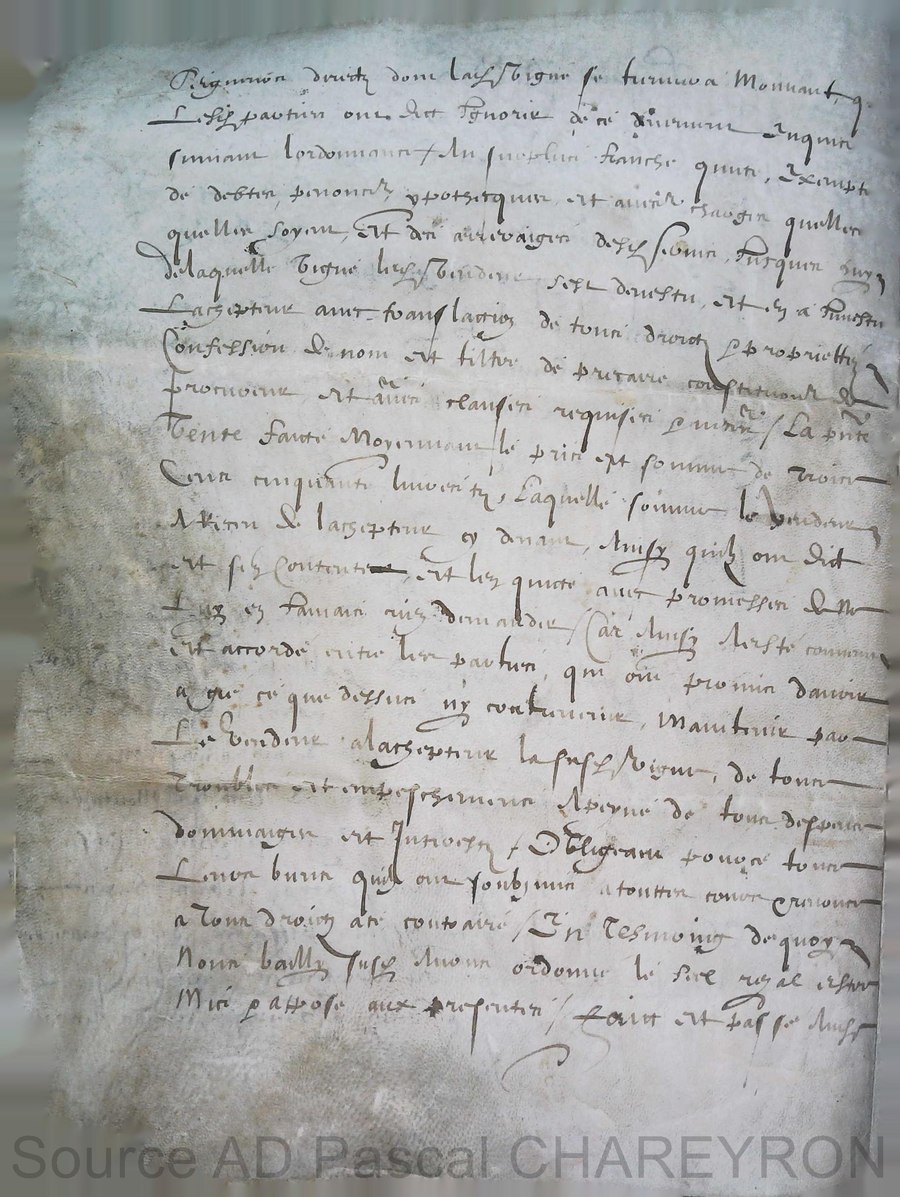 Seigneurs directz dont lad vigne se treuvera Mouvant, q
Lesd parties ont dict Ignorer de ce Enquis
suivant lordonnance / Au surplus franche quicte, Exempte
de debtes, penoncell ypothecques, et autres charges quelles
quelles soyent, Et des arreraiges desd servis, Jusques huy
De laquelle vigne led vendeur sest devestu, et en a Investu
Lachepteur avec translation de tous droictz & proprietté
Confession de nom et tiltre de precaire constitution de
procureur, et autres clauses requises & / La pnte
Vente faicte Moyennant le pris et somme de trois
Cens cinquante livres tz, Laquelle somme le vendeur
A Receu de lachepteur cy devant, Ainsy quilz ont dict
et sen Contente, Et len quicte avec promesses de ne
Luy en Jamais rien demander / Car Ainsy A esté convenu
et accordé entre les parties, qui ont promis davoir
a gré ce que dessus ny contrevenir, Maintenir par
Le vendeur a lachepteur la susd vigne, de tous
troubles et empeschemens, A peyne de tous despens
dommaiges et Interestz / Obligeant pour ce tous
Leurs biens quilz ont soubzmis a touttes cours & renoncé
a tous droictz a ce contraire / En Tesmoing de quoy
Nous bailly susd Avons ordonné le seel royal estre
Mis & apposé aux presentes / Faict et passé Aud
Source AD Pascal CHAREYRON